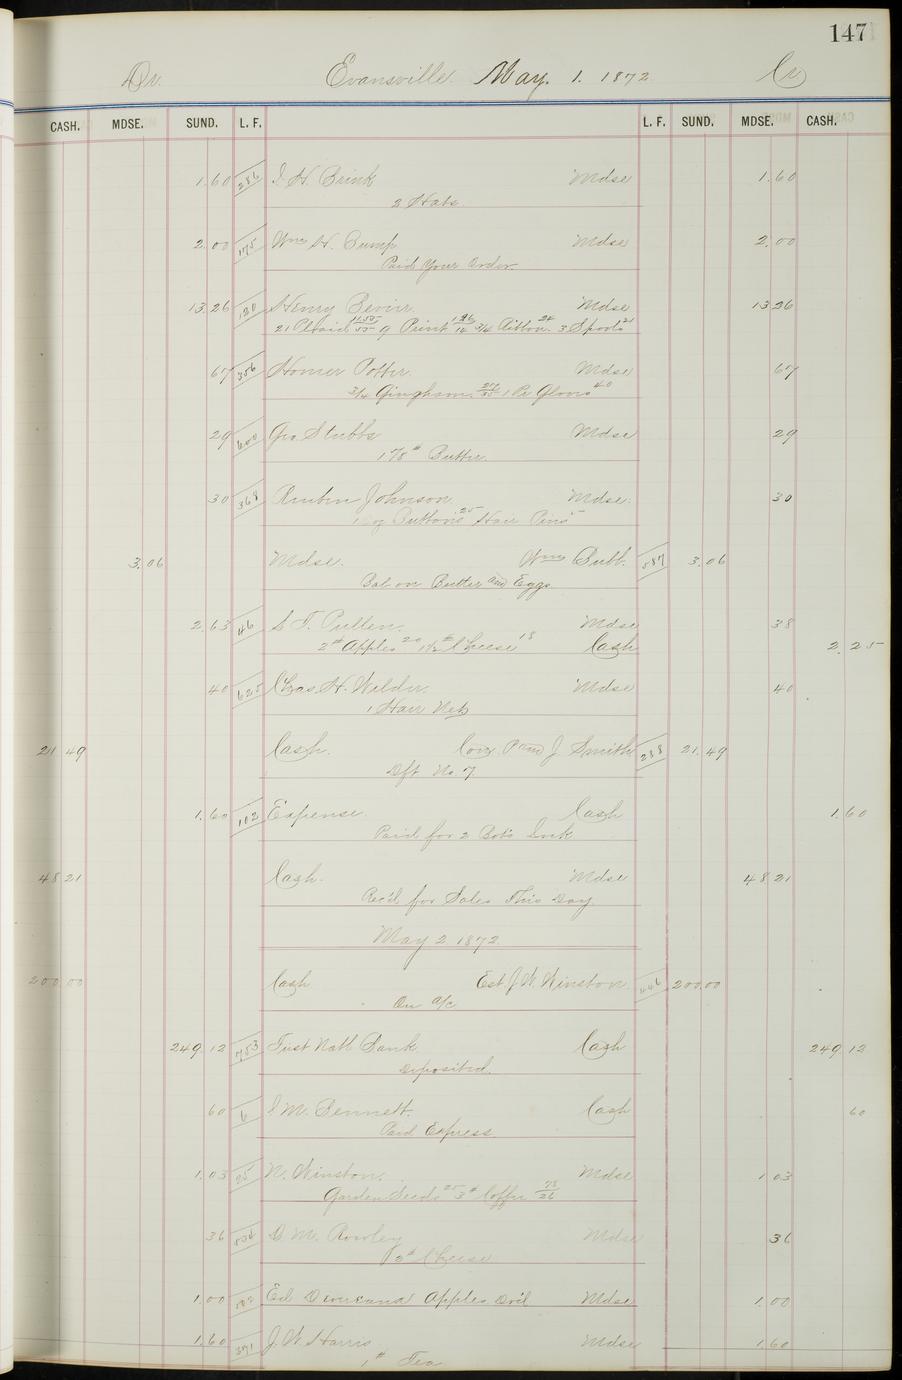 147
Dr. Evansville May. 1. 1872 Cr
CASH. MDSE. SUND. L. F. L. F. SUND. MDSE. CASH.
1.60 286 I. H. Brink Mdse 1.60
2 Hats.
2.00 175 Wm H. Bump Mdse 2.00
Paid Your Order.
13.26 120 Henry Bevier. Mdse 13 26
21 Plaid 11.55/55 9 Print 1.26/14 3/4 Ribbon 24 3 Spools 21
67 356 Homer Potter. Mdse 67
3/4 Gingham 27/35 1 Pr Gloves 40
29 600 Geo. Stubbs Mdse 29
1 7/8 # Butter.
30 368 Reuben Johnson Mdse. 30
Buttons 25 Hair Pins 5
3.06 Mdse. Wm Bubb. 587 3.06
Bal on Butter and Eggs
2.63 46 S. T. Pullen. Mdse 38
2 # Apples 20 1 1/2 # Cheese 18 Cash 2.25
40 625 Chas. H. Wilder. Mdse 40
1 Hair Net
21 49 Cash. J Smith 288 21.49
Dft No. 7
1.60 102 Expense. Cash 1.60
Paid for 2 Bots
48 21 Cash. Mdse 48 21
Rec'd for Sales This Day.
May 2 1872.
200.00 Cash Est. J. W. Winston 446 200.00
On a/c
249.12 753 First Natl Bank Cash 249 12
Deposited.
60 6 I. M. Bennett. Cash 60
Paid Express.
1.03 25 N. Winston. Mdse 1 03
Garden Seeds 25 3 # Coffee 78/26
36 534 D. M. Rowley Mdse 36
2 # Cheese
1.00 Ed Apples Mdse 1.00
1.60 371 J. W. Harris Mdse 1.60
1 # Tea